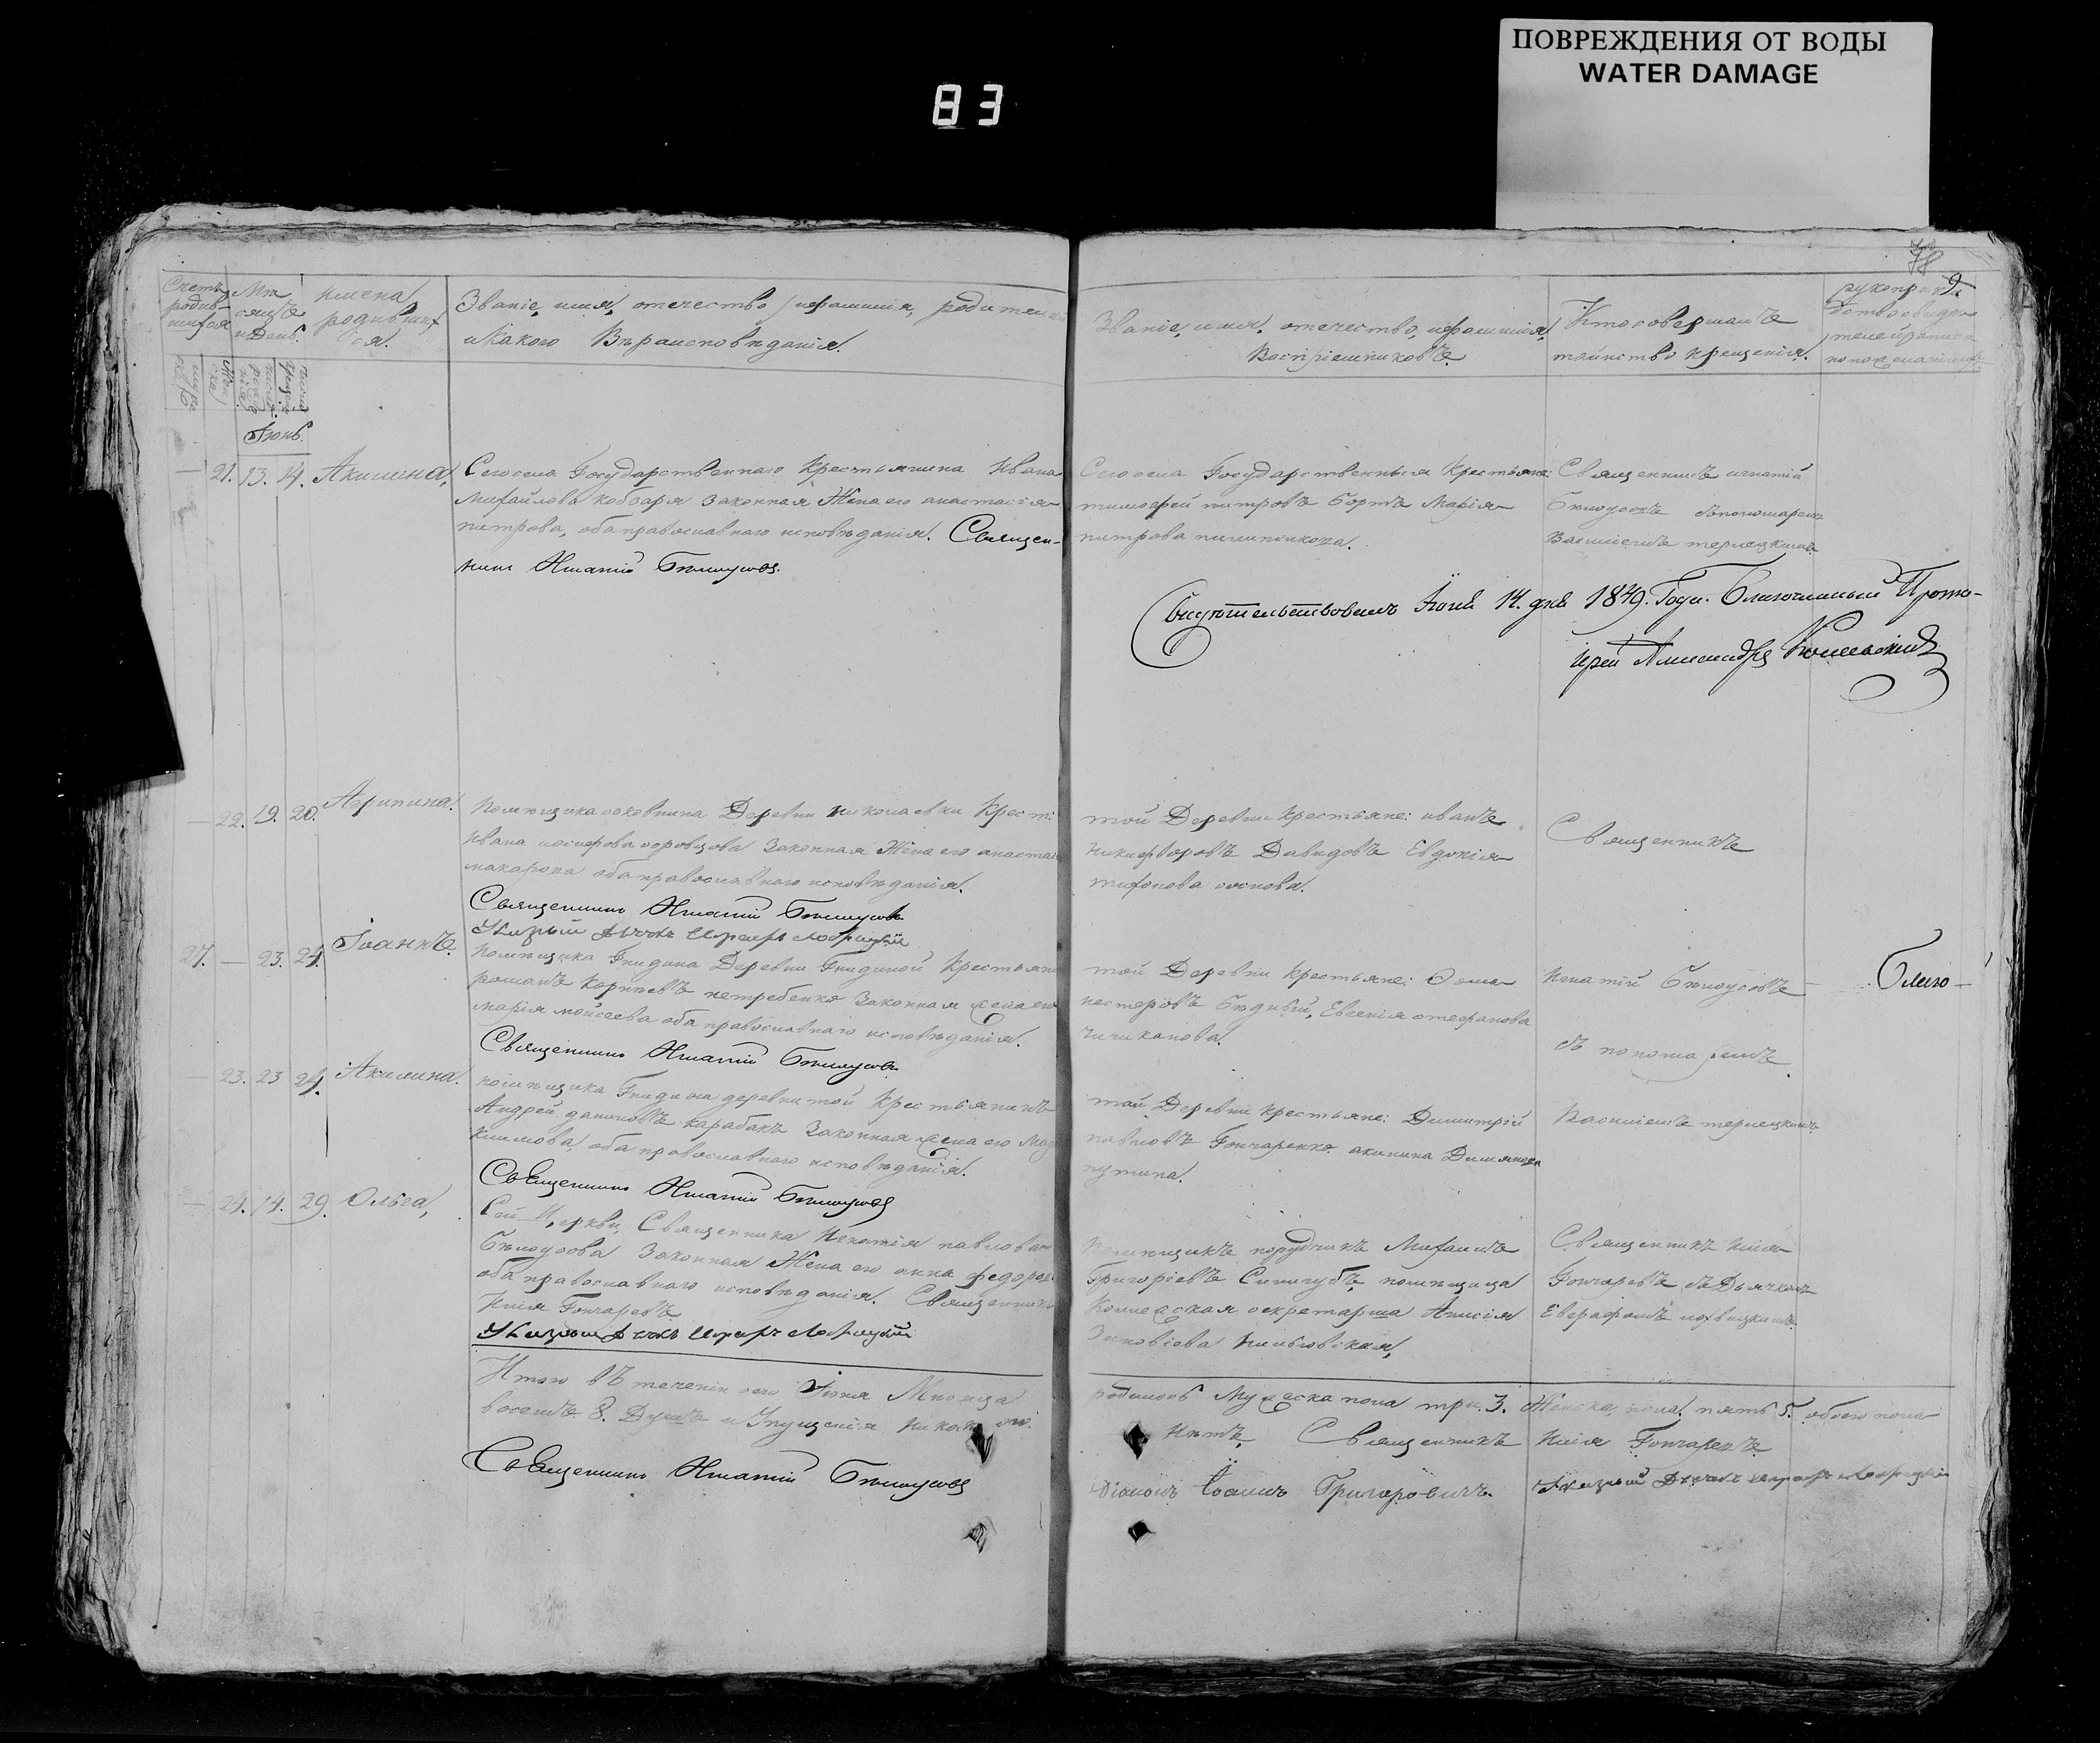 ПОВРЕЖДЕНИЯ ОТ ВОДЫ
WATER DAMAGE
83
78
9.
Счетъ родив-шихся
Мѣсяцъ и День.
имена родившихся.
Званіе, имя, отечество, и фамилія, родителей
и какого Вѣроисповѣданія.
Іюнь.
— 21. 13. 14. Акилина,
Сего села Государственнаго крестьянина Ивана
Михайлова кобзаря Законная Жена его анастасія
питрова, оба православнаго исповѣданія. Священ-
никъ Игнатій Бѣлоусовъ
— 22. 19. 20. Агрипина.
Помѣщика Деревни николаевки Крест:
Ивана Законная Жена его анастас
макарова оба православнаго исповѣданія.
Священникъ Игнатій Бѣлоусовъ
27. — 23. 24. Іоаннъ.
Помѣщика Гнидина Деревни Гнидиной крестьян
романъ Корнѣевъ нетребенко Законная жена его
марія моисеева оба православнаго исповѣданія.
Священникъ Игнатій Бѣлоусовъ
— 23. 23 24. Акилина.
помѣщика Гнидина деревни той крестьянинъ
Андрей даниловъ карабанъ Законная жена его Мар
климова, оба православнаго исповѣданія.
Священникъ Игнатій Бѣлоусовъ
— 24. 14. 29. Ольга,
Сей Церкви Священника Игнатія павлова
Бѣлоусова Законная Жена его анна федоров
оба православнаго исповѣданія. Священникъ
Илія Гончаревъ
Итого въ теченіи сего Іюня Мѣсяца
восемъ 8. Душъ и Упущенія никакого
Священникъ Игнатій Бѣлоусовъ
Званіе, имя, отечество, и фамилія,
Воспріемниковъ.
Кто совершалъ
таинство крещенія.
Сего села Государственныя Крестьяне:
тимофей питровъ бортъ Марія
питрова
Священникъ игнатій
Бѣлоусовъ съ пономаремъ
Василіемъ терлецкимъ
Свидѣтельствовалъ Іюня 14. дня 1849. Года. Благочинный Прото-
іерей Александръ
той Деревни крестьяне: иванъ
никифоровъ Давидовъ Евдокія
тихонова
Священникъ
той Деревни крестьяне: Фома
нестеровъ бѣдный, Евгенія стефанова
чичиканова.
Игнатій Бѣлоусовъ
Благо-
съ пономаремъ
той Деревни крестьяне: Димитрій
павловъ Гончаренко акилина Демянова
путина.
Василіемъ терлецкимъ
Помѣщикъ порудчикъ Михаилъ
Григоріевъ Синегубъ, помѣщица
Колежская секретарша Анисія
Зиновіева
Священникъ Илія
Гончаревъ съ Дьячкомъ
Евграфомъ лохвицкимъ
родилось Мужеска пола три. 3. Женска, пола, пять 5. обоего пола
нѣтъ, Священникъ Илія Гончаревъ
Діаконъ Іоаннъ Григоровичъ.